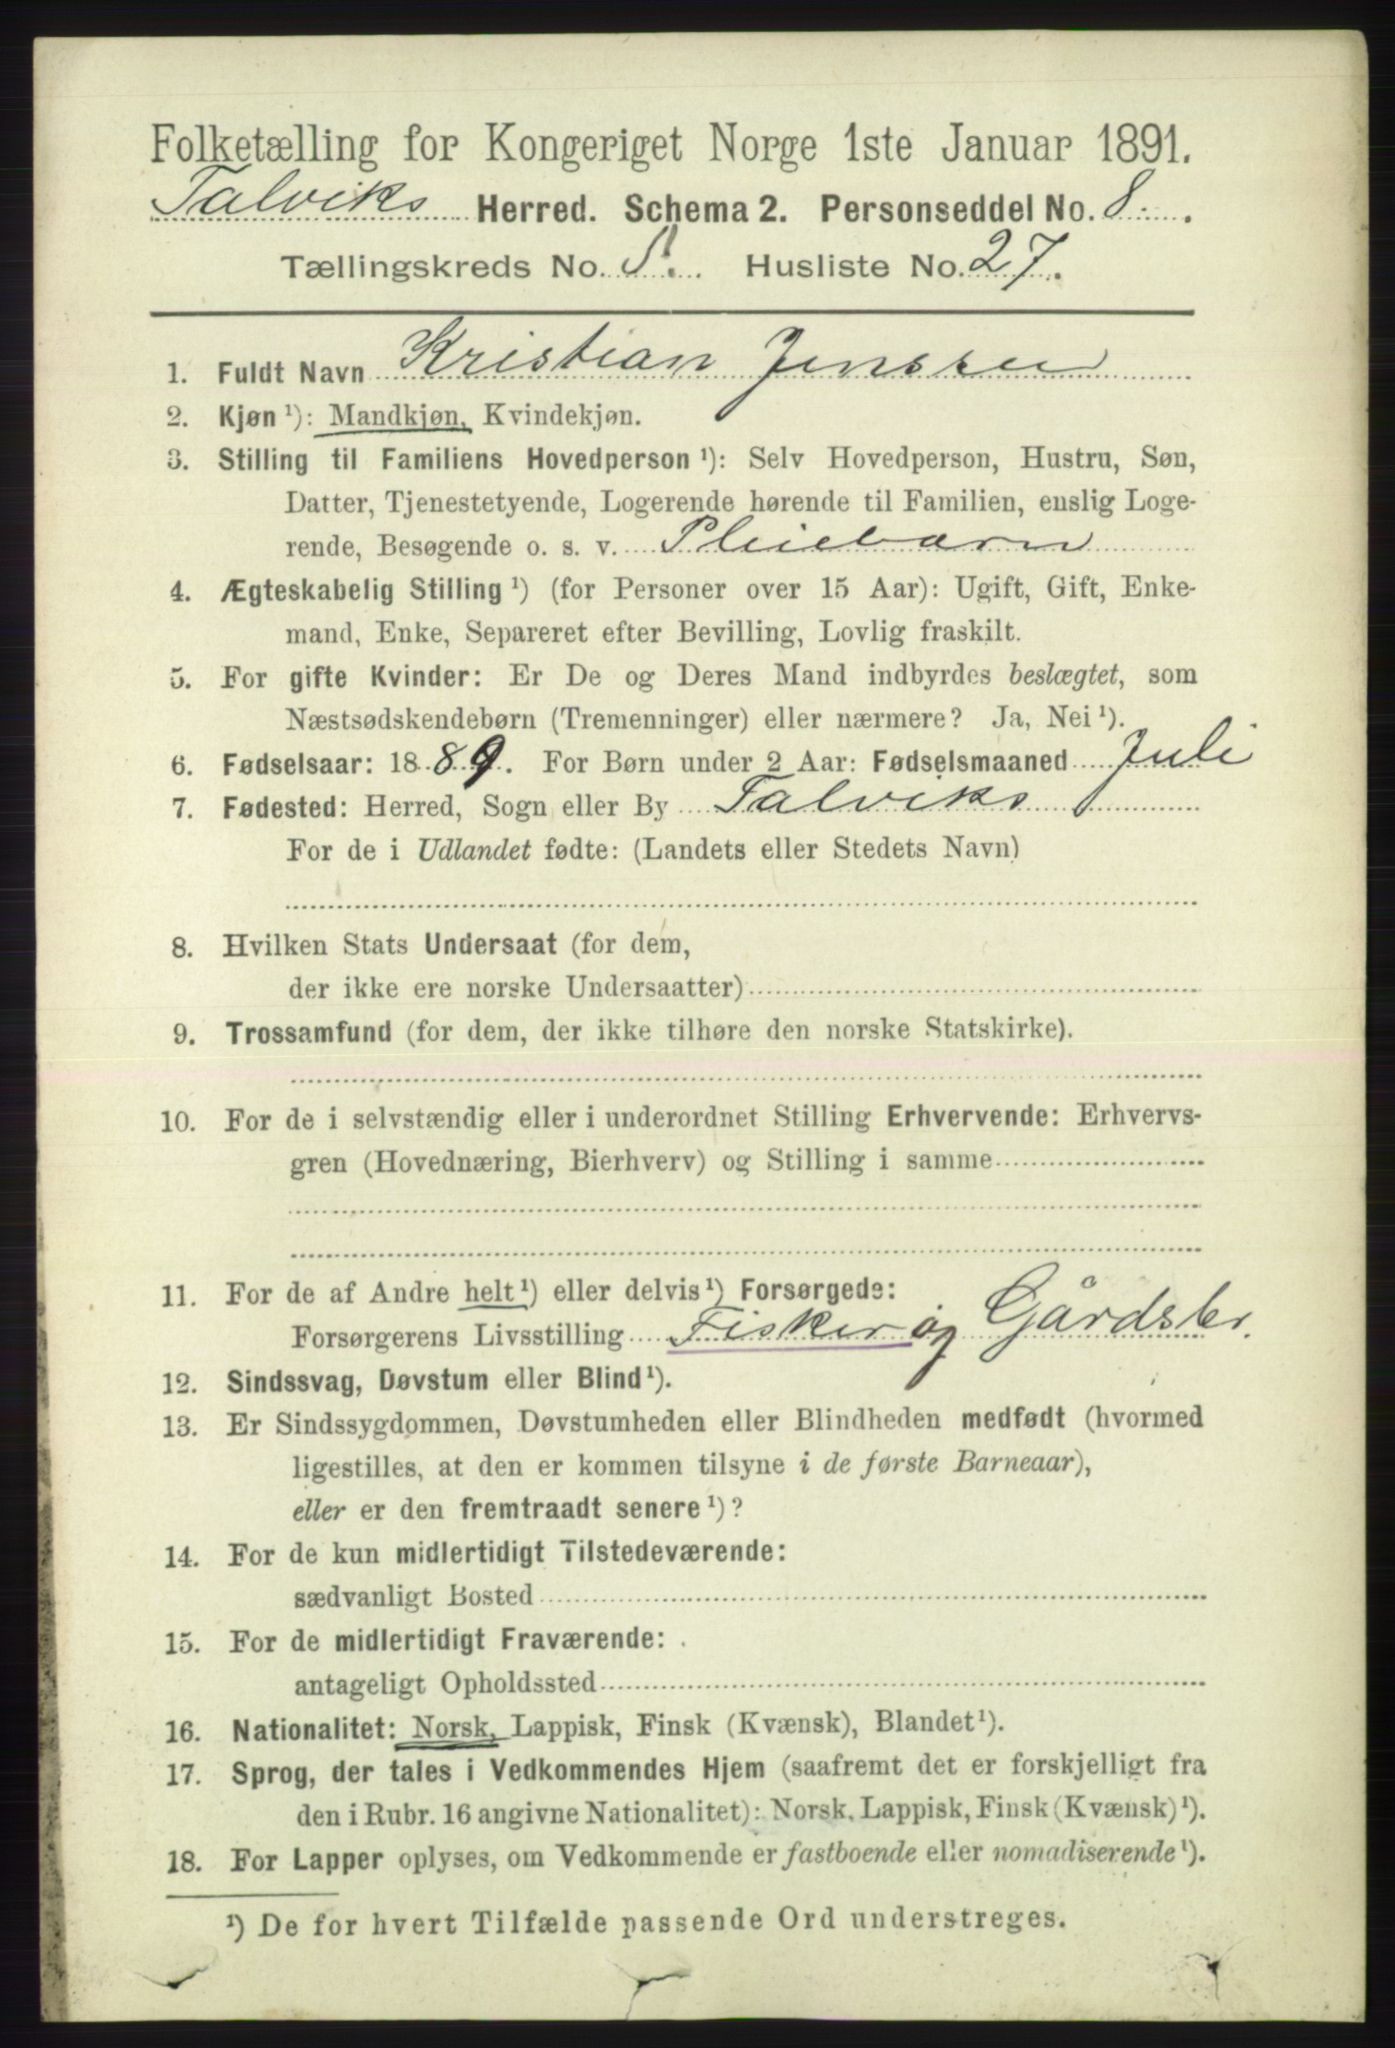 Folketælling for Kongeriget Norge 1ste Januar 1891.
Talviks Herred. Schema 2. Personseddel No. 8.
Tællingskreds No. 5. Husliste No. 27.
1. Fuldt Navn Kristian Jenssen
2. Kjøn ¹): Mandkjøn, Kvindekjøn.
3. Stilling til Familiens Hovedperson ¹): Selv Hovedperson, Hustru, Søn,
Datter, Tjenestetyende, Logerende hørende til Familien, enslig Loge-
rende, Besøgende o. s. v. Pleiebarn
4. Ægteskabelig Stilling ¹) (for Personer over 15 Aar): Ugift, Gift, Enke-
mand, Enke, Separeret efter Bevilling, Lovlig fraskilt.
5. For gifte Kvinder: Er De og Deres Mand indbyrdes beslægtet, som
Næstsødskendebørn (Tremenninger) eller nærmere? Ja, Nei ¹).
6. Fødselsaar: 1889. For Børn under 2 Aar: Fødselsmaaned Juli
7. Fødested: Herred, Sogn eller By Talviks
For de i Udlandet fødte: (Landets eller Stedets Navn)
8. Hvilken Stats Undersaat (for dem,
der ikke ere norske Undersaatter)
9. Trossamfund (for dem, der ikke tilhøre den norske Statskirke).
10. For de i selvstændig eller i underordnet Stilling Erhvervende: Erhvervs-
gren (Hovednæring, Bierhverv) og Stilling i samme
11. For de af Andre helt ¹) eller delvis ¹) Forsørgede:
Forsørgerens Livsstilling Fisker og Gårdsbr.
12. Sindssvag, Døvstum eller Blind ¹).
13. Er Sindssygdommen, Døvstumheden eller Blindheden medfødt (hvormed
ligestilles, at den er kommen tilsyne i de første Barneaar),
eller er den fremtraadt senere ¹)?
14. For de kun midlertidigt Tilstedeværende:
sædvanligt Bosted
15. For de midlertidigt Fraværende:
antageligt Opholdssted
16. Nationalitet: Norsk, Lappisk, Finsk (Kvænsk), Blandet ¹).
17. Sprog, der tales i Vedkommendes Hjem (saafremt det er forskjelligt fra
den i Rubr. 16 angivne Nationalitet): Norsk, Lappisk, Finsk (Kvænsk) ¹).
18. For Lapper oplyses, om Vedkommende er fastboende eller nomadiserende ¹).
¹) De for hvert Tilfælde passende Ord understreges.